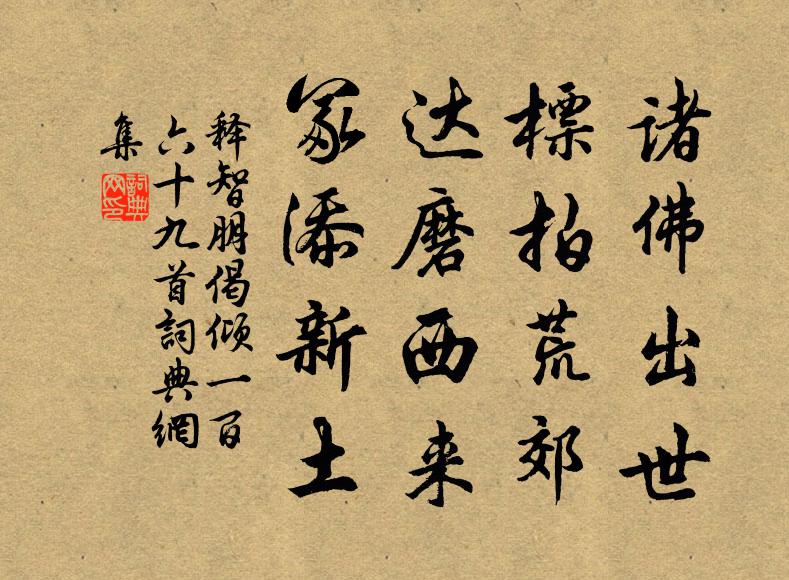 诸佛出世
標拍荒郊
达磨西来
冢添新土
释智朋偈倾一百
六十九首詞典網
集
詞典
网印